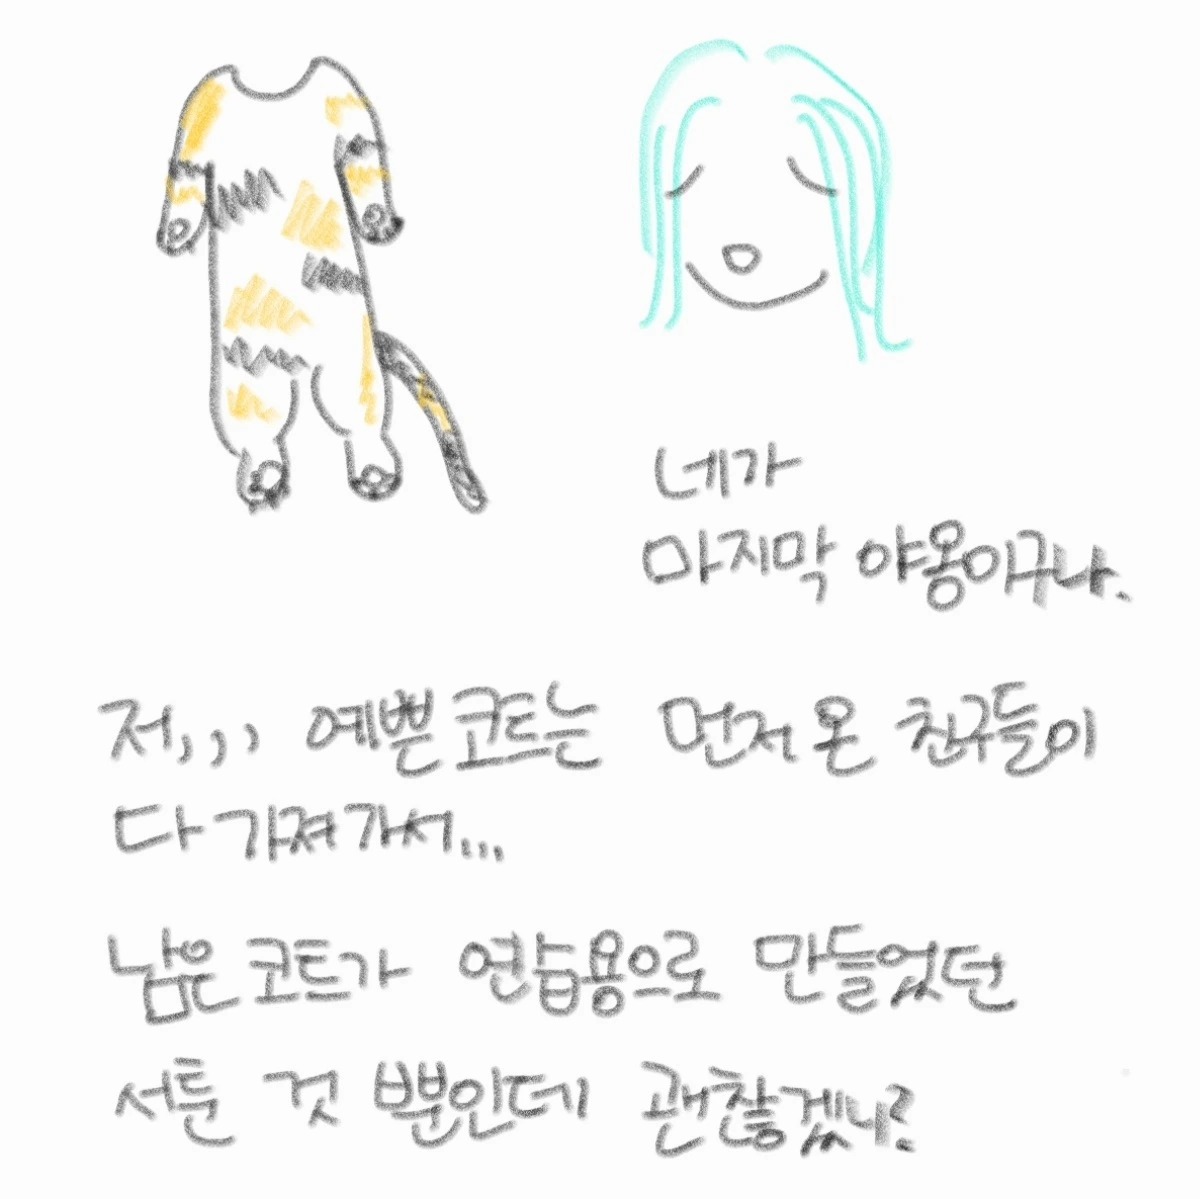 네가
마지막 야옹이구나.
저,,, 예쁜 코트는 먼저 온 친구들이
다 가져가서...
남은 코트가 연습용으로 만들었던
서툰 것 뿐인데 괜찮겠니?